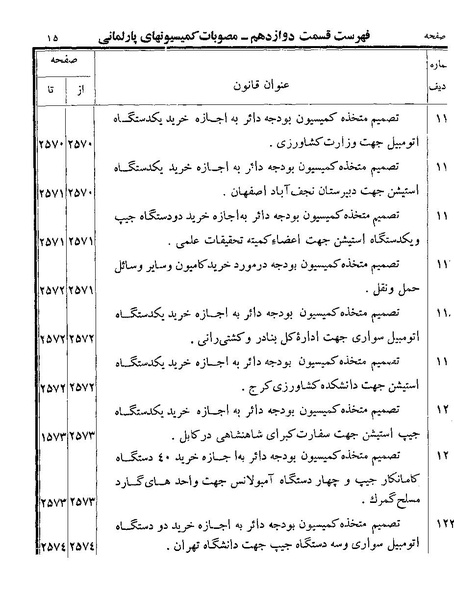 صفحه فهرست قسمت دوازدهم ـ مصوبات کمیسیونهای پارلمانی ۱۵
ماره صفحه
دیف عنوان قانون از تا
۱۱ تصمیم متخذه کمیسیون بودجه دائر به اجازه خرید یکدستگاه
اتومبیل جهت وزارت کشاورزی . ۲۵۷۰ ۲۵۷۰
۱۱ تصمیم متخذه کمیسیون بودجه دائر به اجازه خرید یکدستگاه
استیشن جهت دبیرستان نجف‌آباد اصفهان . ۲۵۷۰ ۲۵۷۱
۱۱ تصمیم متخذه کمیسیون بودجه دائر به‌اجازه خرید دودستگاه جیپ
ویکدستگاه استیشن جهت اعضاء کمیته تحقیقات علمی . ۲۵۷۱ ۲۵۷۱
۱۱ تصمیم متخذه کمیسیون بودجه درمورد خرید کامیون وسایر وسائل
حمل ونقل . ۲۵۷۱ ۲۵۷۲
۱۱ تصمیم متخذه کمیسیون بودجه دائر به اجازه خرید یکدستگاه
اتومبیل سواری جهت ادارهٔ کل بنادر و کشتی‌رانی . ۲۵۷۲ ۲۵۷۲
۱۱ تصمیم متخذه کمیسیون بودجه دائر به اجازه خرید یکدستگاه
استیشن جهت دانشکده کشاورزی کرج . ۲۵۷۲ ۲۵۷۲
۱۲ تصمیم متخذه کمیسیون بودجه دائر به اجازه خرید یکدستگاه
جیپ استیشن جهت سفارت کبرای شاهنشاهی در کابل . ۲۵۷۳ ۱۵۷۳
۱۲ تصمیم متخذه کمیسیون بودجه دائر به‌اجازه خرید ۴۰ دستگاه
کامانکار جیپ و چهار دستگاه آمبولانس جهت واحد های گارد
مسلح گمرك . ۲۵۷۳ ۲۵۷۳
۱۲۲ تصمیم متخذه کمیسیون بودجه دائر به اجازه خرید دو دستگاه
اتومبیل سواری وسه دستگاه جیپ جهت دانشگاه تهران . ۲۵۷۴ ۲۵۷۴